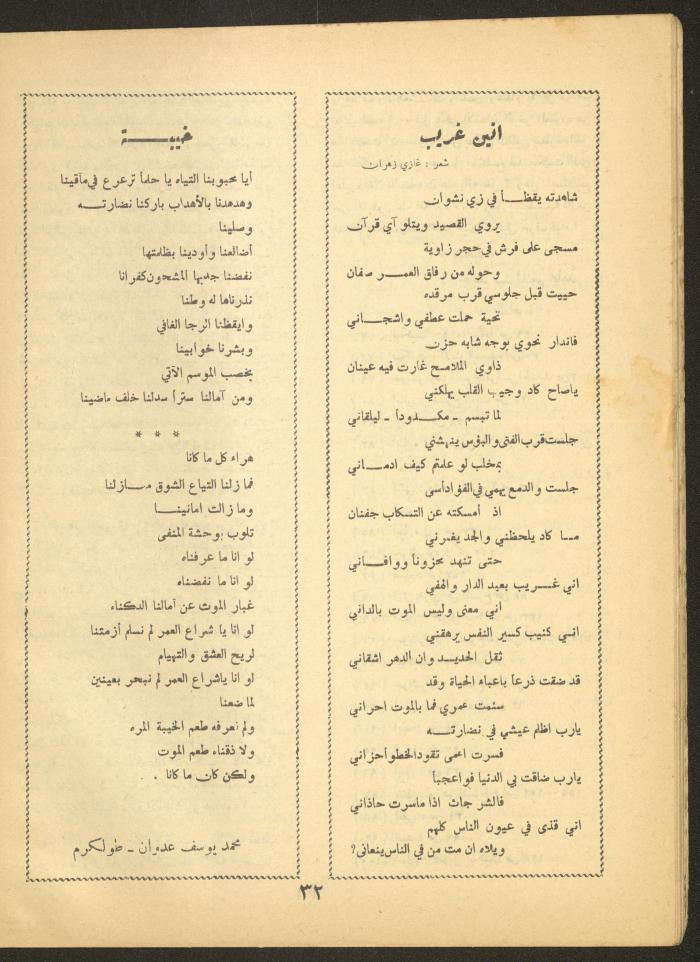 انين غريب
شعر : غازي زهران
شاهدته يقظــأ في زي نشوان
يروي القصيد ويتلو آي قرآن
مسجى على فرش في حجر زاوية
وحوله من رفاق العمـــر صفان
حييت قبل جلوسي قرب مرقده
تحية حملت عطفي واشجــاني
فاندار نحوي بوجه شابه حزن
ذاوي الملامــح غارت فيه عينان
ياصاح كاد وجيب القلب يهلكني
لما تبسم ــ مكــدودأ ــ ليلقاني
جلست قرب الفتى والبؤس ينهشني
بمخلب لو علمتم كيف ادمــاني
جلست والدمع يهمي في الفؤاد أسى
اذ أمسكته عن التسكاب جفنان
مــا كاد يلحظني والجد يغمرني
حتى تنهد محزونأ ووافــاني
اني غـــريب بعيد الدار والهفي
أني معنى وليس الموت بالداني
انــي كئيب كسير النفس يرهقني
ثقل الحديــد وان الدهر اشقاني
قد ضقت ذرعأ باعباء الحياة وقد
سئمت عمري فما بالموت احراني
يارب اظلم عيشي في نضارتــه
فسرت اعمى تقود الخطو أحزاني
يارب ضاقت بي الدنيا فواعجبأ
فالشر جاث اذا ماسرت حاذاني
اني قذى في عيون الناس كلهم
ويلاه ان مت من في الناس ينعاني؟
خيبـــــة
أيا محبوبنا التياه يا حلمأ ترعرع في مآقينا
وهدهدنا بالأهداب باركنا نضارتــه
وصلينا
أضالعنا وأودينا بظلمتها
نفضنا جدبها المشحون كفرانا
نذرناها له وطنا
وايقظنا الرجا الغافي
وبشرنا خوابينا
بخصب الموسم الآتي
ومن آمالنا سترأ سدلنا خلف ماضينا
* * *
هراء كل ما كانا
فما زلنا التياع الشوق منــازلنا
وما زالت امانينـــا
تلوب بوحشة المنفى
لو انا ما عرفناه
لو انا ما نفضناه
غبار الموت عن آمالنا الدكناء
لو انا يا شراع العمر لم نسلم أزمتنا
لريح العشق والتهيام
لو انا ياشراع العمر لم نبحر بعينين
لما ضعنا
ولم نعرفه طعم الخيبة المره
ولا ذقناه طعم الموت
ولكن كان ما كانا .
محمد يوسف عدوان ــ طولكرم
٣٢